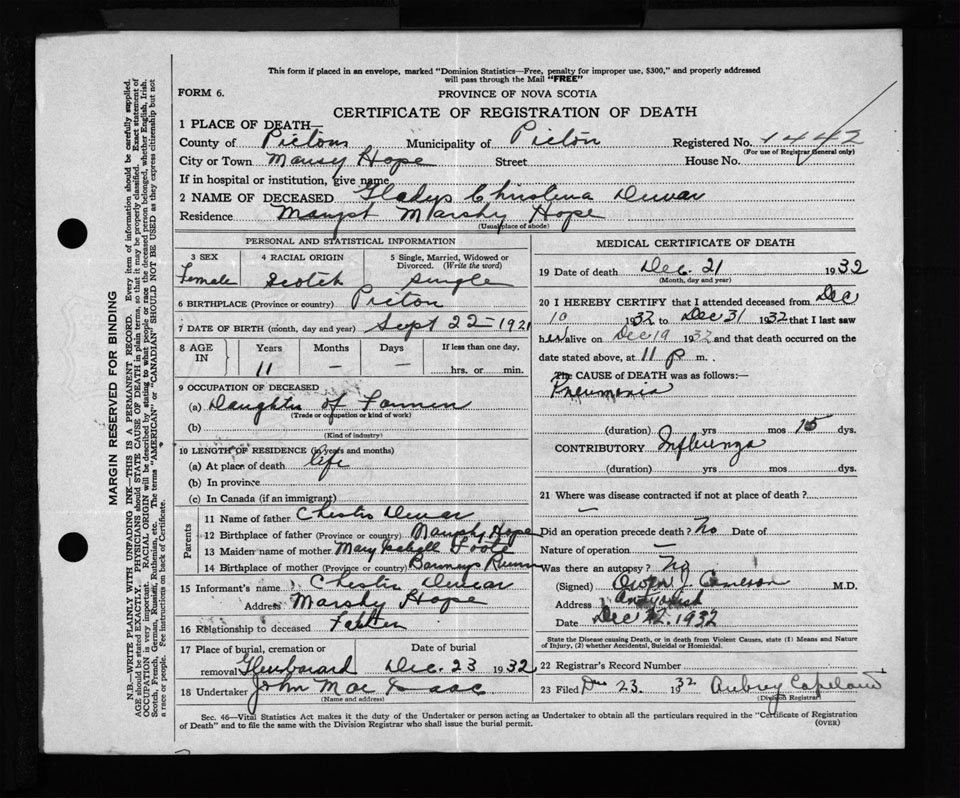 This form if placed in an envelope, marked "Dominion Statistics—Free, penalty for improper use, $300," and properly addressed
will pass through the Mail "FREE"
FORM 6.
PROVINCE OF NOVA SCOTIA
CERTIFICATE OF REGISTRATION OF DEATH
1 PLACE OF DEATH—
County of Pictou Municipality of Picton Registered No. 1442
(For use of Registrar General only)
City or Town Marsy Hope Street House No.
If in hospital or institution, give name
2 NAME OF DECEASED Gladys Christena Dewar
Residence Marshy Hope
(Usual place of abode)
PERSONAL AND STATISTICAL INFORMATION
3 SEX Female
4 RACIAL ORIGIN Scotch
5 Single, Married, Widowed or Divorced. (Write the word) Single
6 BIRTHPLACE (Province or country) Picton
7 DATE OF BIRTH (month, day and year) Sept 22 - 1921
8 AGE IN Years 11 Months — Days — If less than one day. hrs. or min.
9 OCCUPATION OF DECEASED
(a) Daughter of Farmer
(Trade or occupation or kind of work)
(b)
(Kind of industry)
10 LENGTH OF RESIDENCE (in years and months)
(a) At place of death life
(b) In province
(c) In Canada (if an immigrant)
Parents
11 Name of father Chester Dewar
12 Birthplace of father (Province or country) Marshy Hope
13 Maiden name of mother Mary Isabell Foote
14 Birthplace of mother (Province or country) Barneys River
15 Informant's name Chester Dewar
Address Marshy Hope
16 Relationship to deceased Father
17 Place of burial, cremation or removal Date of burial
Dec. 23 1932
18 Undertaker John Mac Isaac
(Name and address)
MEDICAL CERTIFICATE OF DEATH
19 Date of death Dec. 21 1932
(Month, day and year)
20 I HEREBY CERTIFY that I attended deceased from Dec
10 1932 to Dec 31 1932 that I last saw
her alive on Dec 19 1932 and that death occurred on the
date stated above, at 11 p m.
The CAUSE OF DEATH was as follows:—
Pneumonia
(duration) yrs mos 15 dys.
CONTRIBUTORY Influenza
(duration) yrs mos dys.
21 Where was disease contracted if not at place of death?
—
Did an operation precede death? No Date of
Nature of operation —
Was there an autopsy? No
(Signed) Owen J. Cameron M.D.
Address Antigonish
Date Dec 1932
State the Disease causing Death, or in death from Violent Causes, state (1) Means and Nature
of Injury, (2) whether Accidental, Suicidal or Homicidal.
22 Registrar's Record Number
23 Filed Dec 23. 1932 Aubrey Copeland
(Division Registrar)
Sec. 46—Vital Statistics Act makes it the duty of the Undertaker or person acting as Undertaker to obtain all the particulars required in the "Certificate of Registration
of Death" and to file the same with the Division Registrar who shall issue the burial permit. (OVER)
MARGIN RESERVED FOR BINDING
N.B.—WRITE PLAINLY WITH UNFADING INK—THIS IS A PERMANENT RECORD. Every item of information should be carefully supplied.
AGE should be stated EXACTLY. PHYSICIANS should STATE CAUSE OF DEATH in plain terms, so that it may be properly classified. Exact statement of
OCCUPATION is very important. RACIAL ORIGIN will be described by stating to what people or race the deceased person belonged, whether English, Irish,
Scotch, French, German, Russian, Ruthenian, etc. The terms "AMERICAN" or "CANADIAN" SHOULD NOT BE USED as they express citizenship but not
a race or people. See instructions on back of Certificate.